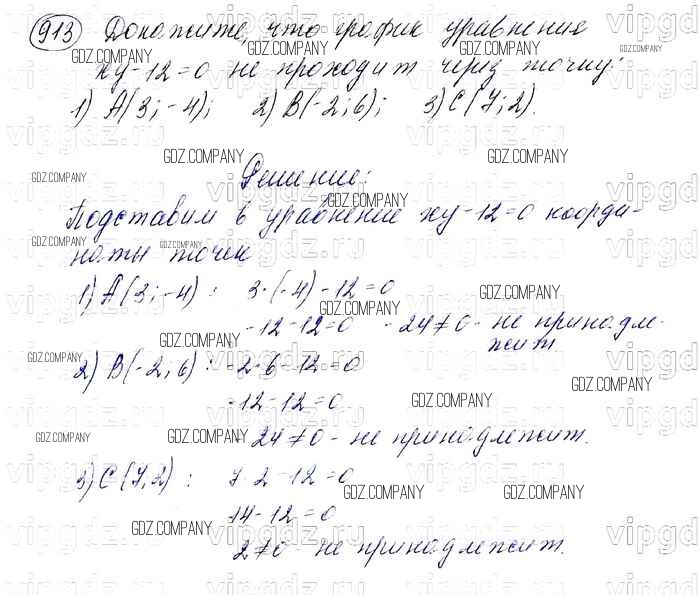 913 Докажите, что график уравнения
xy-12=0 не проходит через точку:
1) A(3;-4); 2) B(-2;6); 3) C(7;2).
Решение:
Подставим в уравнение xy-12=0 коорди-
наты точек
1) A(3;-4): 3·(-4)-12=0
-12-12=0 -24≠0- не принадле-
жит
2) B(-2;6): -2·6-12=0
-12-12=0
-24≠0- не принадлежит.
3) C(7;2): 7·2-12=0
14-12=0
2≠0- не принадлежит.
GDZ.COMPANY
vipgdz.ru